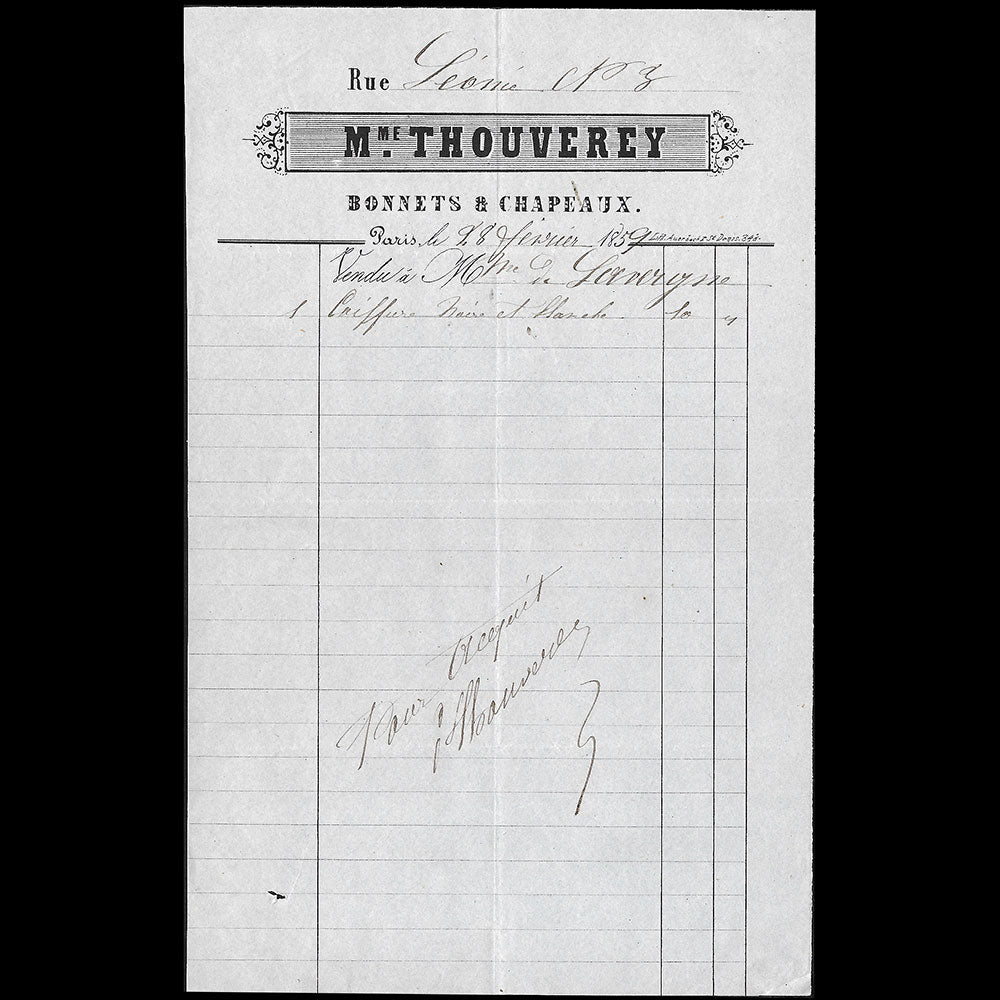 Rue Léonie N° 3
MME. THOUVEREY
BONNETS & CHAPEAUX.
Paris, le 28 février 1859
Vendu à Mme de Lavergne
1 Coiffure Noire et blanche 10 "
Pour acquit
Thouverey